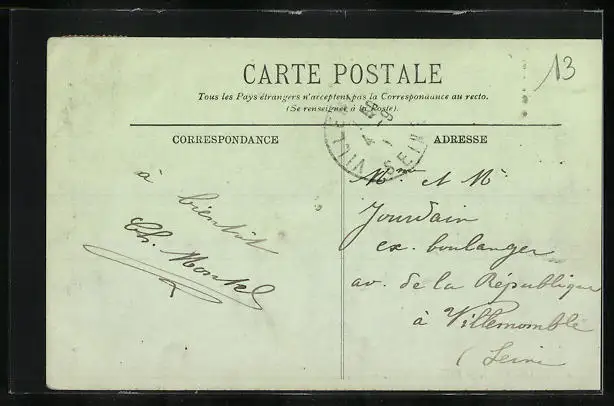 13
CARTE POSTALE
Tous les Pays étrangers n'acceptent pas la Correspondance au recto.
(Se renseigner à la Poste).
CORRESPONDANCE
ADRESSE
à bientôt
Ch.
Mme et Mr
Jourdain
ex. boulanger
av. de la République
à Villemomble
(Seine
SEINE